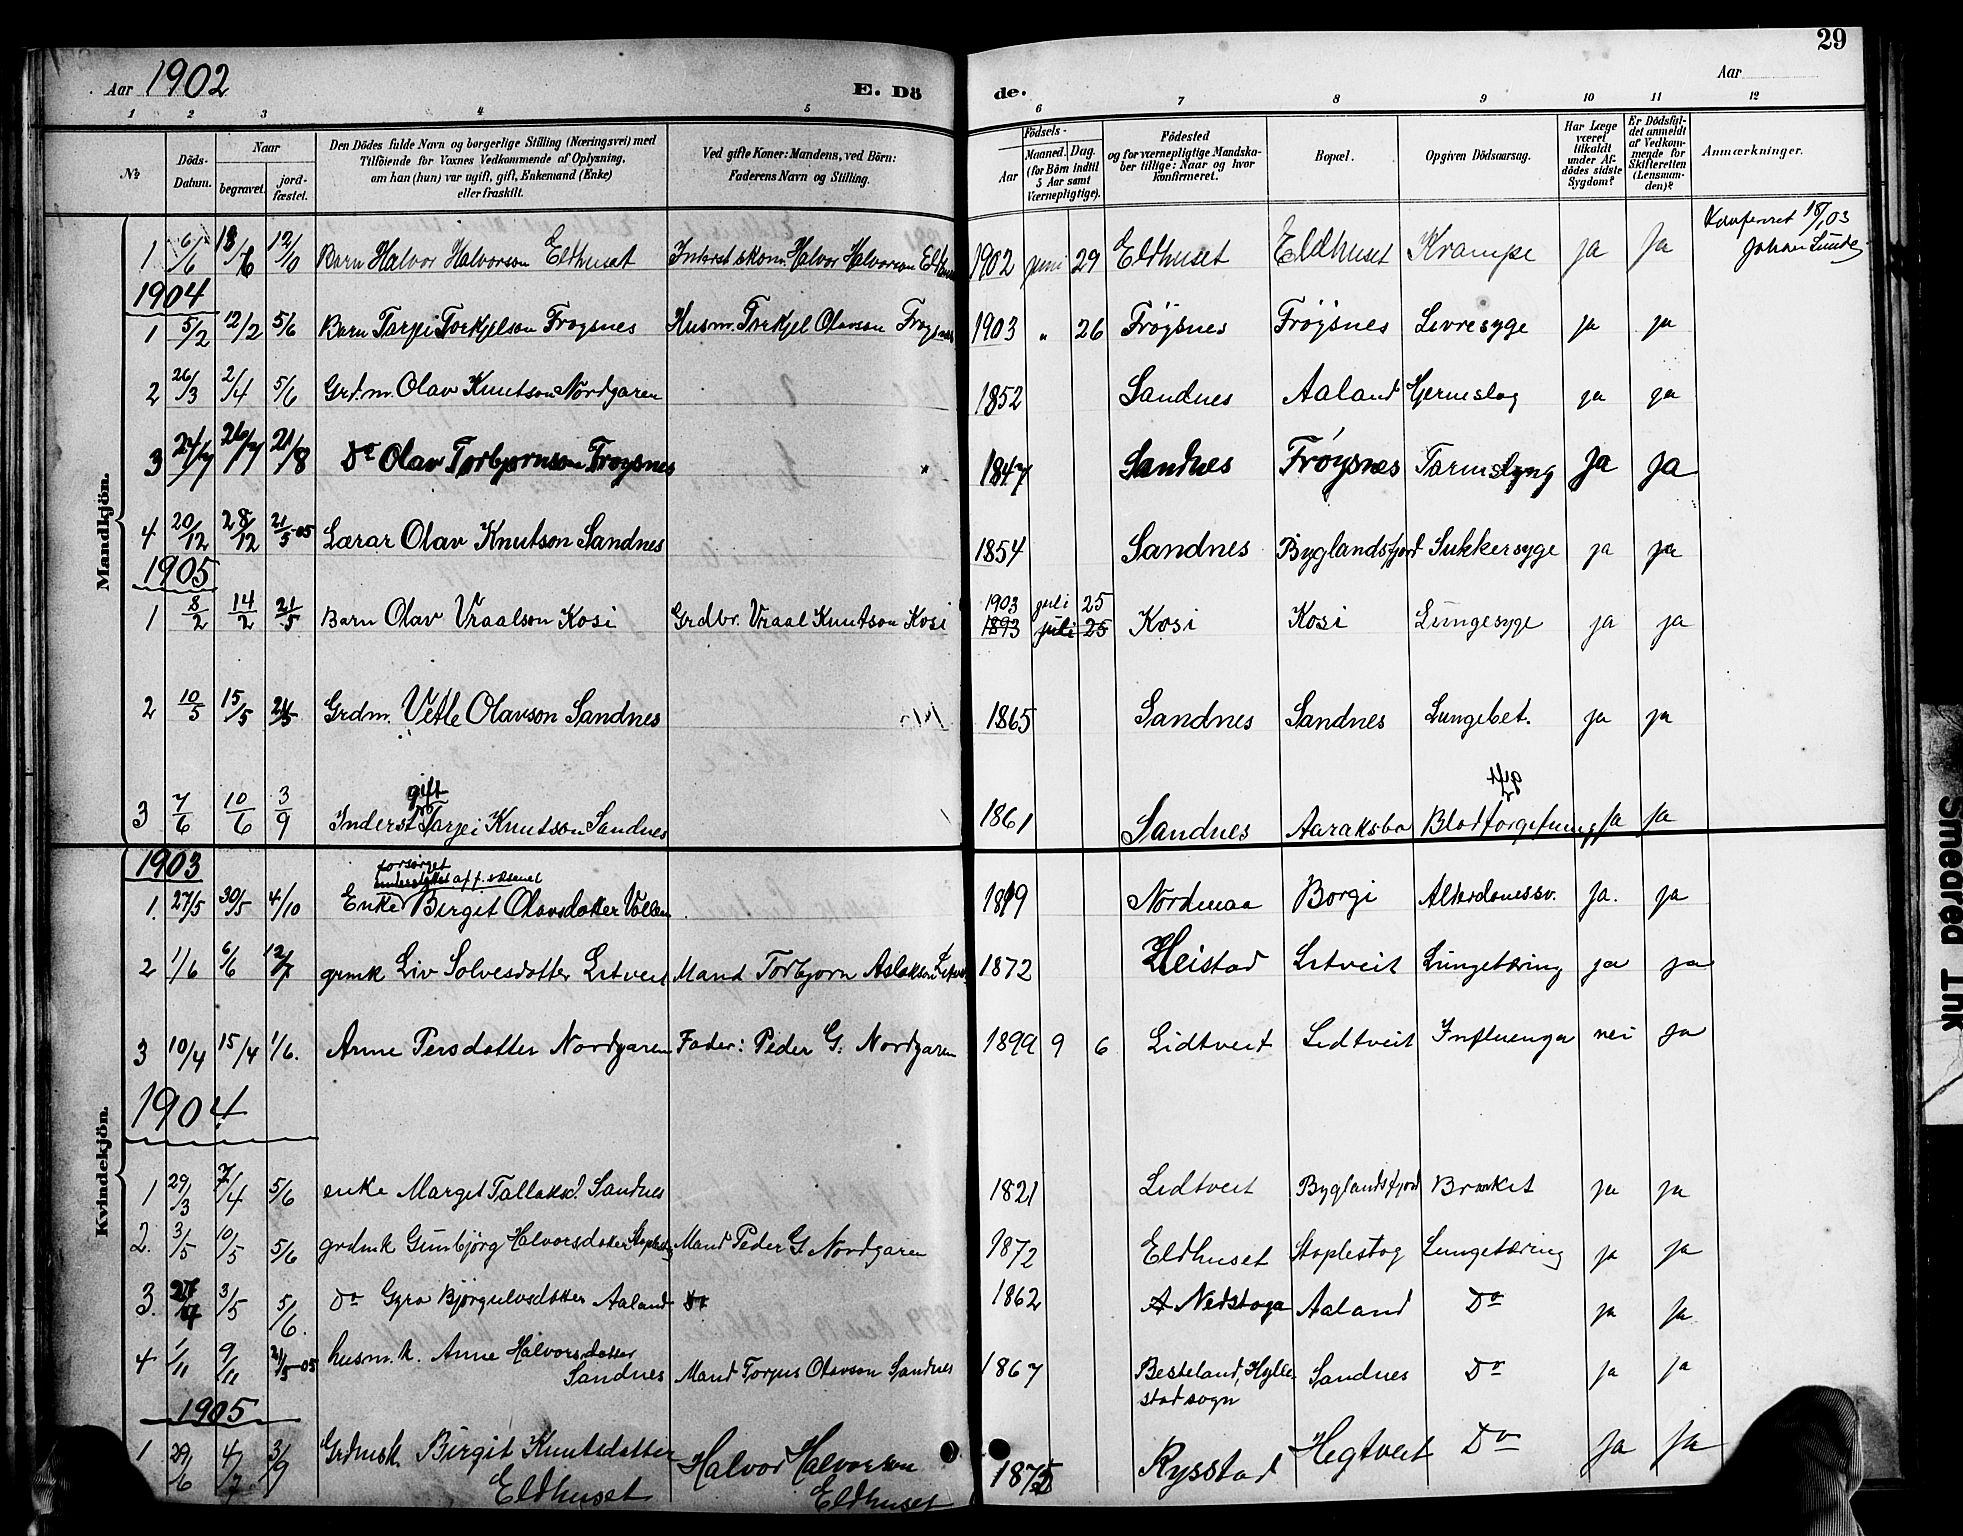 29
Aar 1902
E. Dö
de.
Aar
1 2 3 4 5 6 7 8 9 10 11 12
No
Döds-Datum.
Naar
begravet.
jord-fæstet.
Den Dödes fulde Navn og borgerlige Stilling (Næringsvei) med
Tilföiende for Voxnes Vedkommende af Oplysning,
om han (hun) var ugift, gift, Enkemand (Enke)
eller fraskilt.
Ved gifte Koner: Mandens, ved Börn:
Faderens Navn og Stilling.
Födsels-
Aar
Maaned. Dag.
(for Börn indtil
5 Aar samt
Værnepligtige).
Födested
og for værnepligtige Mandska-
ber tillige: Naar og hvor
konfirmeret.
Bopæl.
Opgiven Dödsaarsag.
Har Læge
været
tilkaldt
under Af-
dödes sidste
Sygdom?
Er Dödsfal-
det anmeldt
af Vedkom-
mende for
Skifteretten
(Lensman-
den)?
Anmærkninger.
Mandkjön.
1 6/6 12/10 Barn Halvor Halvorson Eldhuset Halvor Halvorson 1902 juni 29 Eldhuset Eldhuset Krampe ja ja Konfereret 18/ 03
Johan Lunde
1904
1 5/2 12/2 5/6 Barn Tarjei Torkjelson Frøysnes Husm. Torkjel Olavson Frøysnes 1903 " 26 Frøysnes Frøysnes Levresyge ja ja
2 26/3 2/4 5/6 Grdm. Olav Knutson Nordgaren 1852 Sandnes Aaland Hjerneslag ja ja
3 24/7 26/7 21/8 Do Olav Torbjørnson Frøysnes " 1847 Sandnes Frøysnes Tarmslyng Ja Ja
4 20/12 28/12 21/5-05 Lærar Olav Knutson Sandnes 1854 Sandnes Byglandsfjord Sukkersyge ja ja
1905
1903 juli 25
1 8/2 14/2 21/5 Barn Olav Vraalson Kosi Grdbr. Vraal Knutson Kosi 1893 juli 25 Kosi Kosi Lungesyge ja ja
2 10/5 15/5 21/5 Grdm. Vetle Olavson Sandnes 1865 Sandnes Sandnes Lungebet. ja ja
gift
3 7/6 10/6 3/9 Inderst Tarjei Knutson Sandnes 1861 Sandnes Aaraksbo Blodforgiftning Ja Ja
Kvindekjön.
1903
forsørget
understøttet af f.væsenet
1. 27/5 30/5 4/10 Enke Birgit Olavsdotter Vollen 1819 Nordmaa Borgi Alderdomssv. Ja. ja
2 1/6 6/6 12/7 grmk Liv Solvesdotter Litveit Mand Torbjørn Aslakson 1872 Heistad Litveit Lungetæring ja ja
3 10/4 15/4 1/6. Anne Persdotter Nordgaren Fader: Peder G. Nordgaren 1899 9 6 Lidtveit Lidtveit Influenza nei ja
1904
1 29/3 7/4 5/6 enke Margit Tallaksd. Sandnes 1821 Lidtveit Byglandsfjord Brækit ja ja
2. 3/5 10/5 5/6 grdmk Gunbjørg Halvorsdotter Mand Peder G. Nordgaren 1872 Eldhuset Stoplestog Lungetæring ja ja
3. 27/4 3/5 5/6. Do Gyro Bjørgulvsdotter Aaland Do 1862 A Nedstoga Aaland Do ja ja
4 1/11 9/11 21/5-05 husm.k. Anne Halvorsdotter
Sandnes Mand Torjus Olavson Sandnes 1867 Besteland, Hylle-
stad sogn Sandnes Do ja ja
1905
1 29/6 4/7 3/9 Grdmsk Birgit Knutsdotter
Eldhuset Halvor Halvorson
Eldhuset 1875 Rysstad Hegtveit Do Ja Ja
Smeared Ink